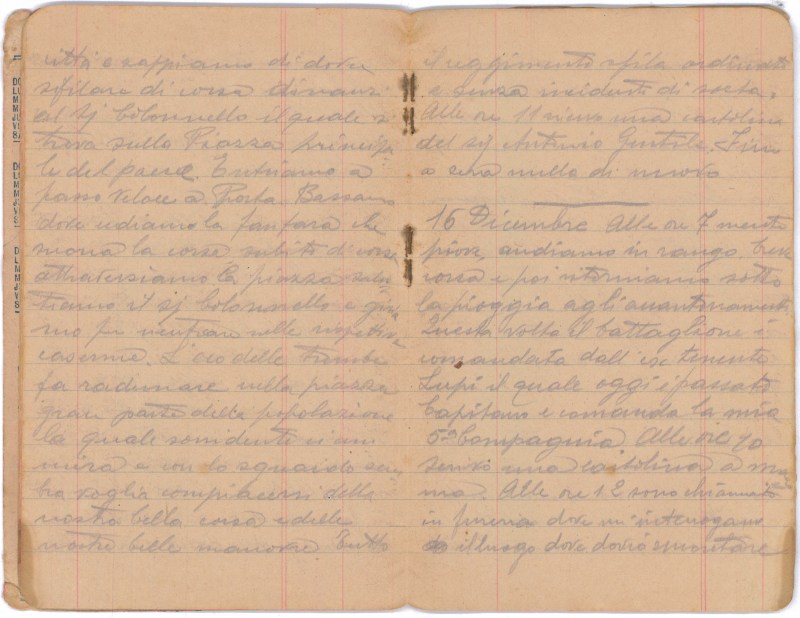 utti e sappiamo di dover
sfilare di corsa dinanzi
al Sj Colonnello il quale si
trova sulla Piazza principa
le del paese. Entriamo a
passo veloce a Porta Bassano
dove udiamo la fanfara che
suona la corsa subito di corsa
attraversiamo la piazza salu
tiamo il sj Colonnello e gira
mo per rientrare nelle rispettive
caserme. L'eco delle trombe
fa radunare nella piazza
gran parte della popolazione
la quale sorridente ci am
mira e con lo sguardo sem
bra voglia compiacersi della
nostra bella corsa e delle
nostre belle manovre Tutto
il reggimento sfila ordinato
e senza incidenti di sorta.
Alle ore 11 ricevo una cartolina
del sig Antonio Gentile. Fino
a sera nulla di nuovo
16 Dicembre Alle ore 7 mentre
piove, andiamo in rango
corsa e poi ritorniamo sotto
la pioggia agli accantonamenti
Questa volta il battaglione è
comandata dall'ex tenente
Lupi il quale oggi è passato
Capitano e comanda la mia
5a Compagnia. Alle ore 10
scrivo una cartolina a mam
ma. Alle ore 12 sono chiamato
in fureria dove mi interrogano
il luogo dove dovrò smontare